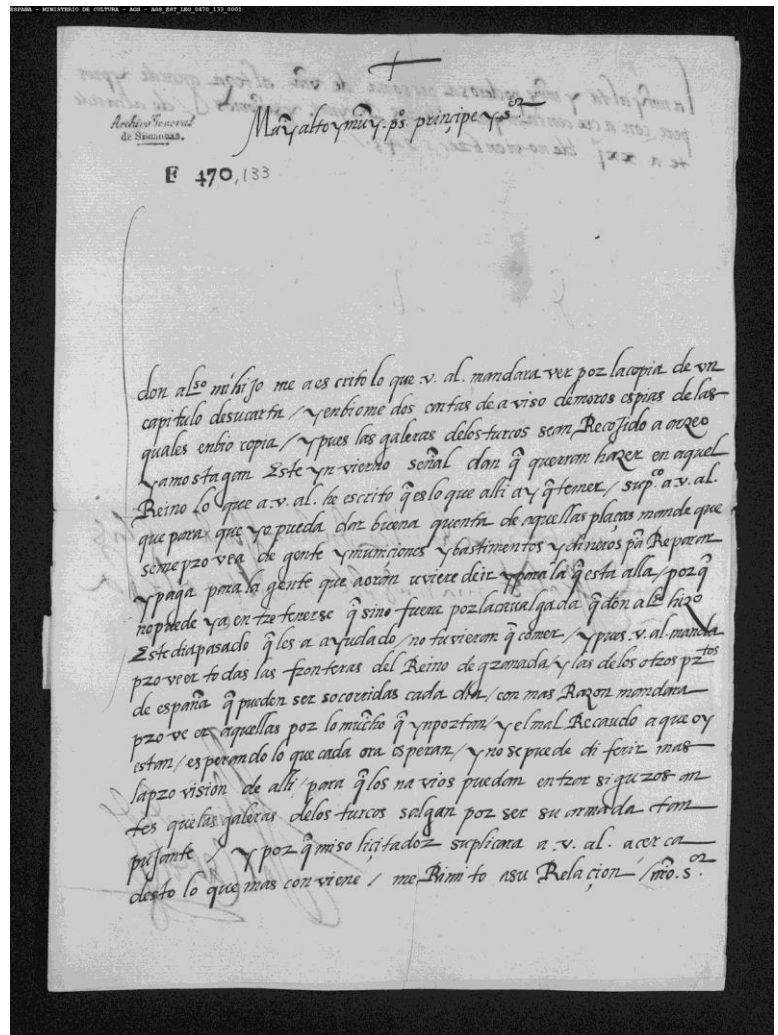 ESPAÑA - MINISTERIO DE CULTURA - AGS - AGS_EST_LEG_0470_133_0001
Muy alto y muy. p̃o. prinçipe y s.or
Archivo General
de Simancas.
E 470,133
don al.so mi hijo me a es crito lo que .v. al. mandara ver por la copia de vn
capitulo de su carta / y enbiome dos cartas de a viso de moros espias de las
quales enbio copia / y pues las galeras de los turcos sean Recojido a arzeo
y a mostagan Este yn vierno señal dan q̃ querran hazer en aquel
Reino lo que a .v. al. he escrito q̃ es lo que alli ay q̃ temer / sup.co a .v. al.
que para que yo pueda dar buena quenta de aquellas plaças mande que
se me pro vea de gente y muniçiones y bastimentos y dineros pã Reparar
y paga para la gente que a orán uviere de ir y para la q̃ esta alla / por q̃
no puede ya en tre tenerse q̃ si no fuera por la cavalgada q̃ don al.so hizo
Este dia pasado q̃ les a a yudado / no tuvieran q̃ comer / y pues .v. al. manda
pro veer to das las fronteras del Reino de granada / y las de los otros pr.tos
de españa q̃ pueden ser socorridas cada dia / con mas Razon mandara
pro ve er aquellas por lo mucho q̃ ynportan / y el mal Recaudo a que oy
estan / esperando lo que cada ora esperan / y no se puede di ferir mas
la pro visión de alli / para q̃ los na vios puedan en trar si guros an
tes que las galeras de los turcos salgan por ser su armada tan
pujante / y por q̃ mi so liçitador suplicara a .v. al. a cer ca
desto lo que mas con viene / me Rimito a su Relaçion / nr̃o. s.or